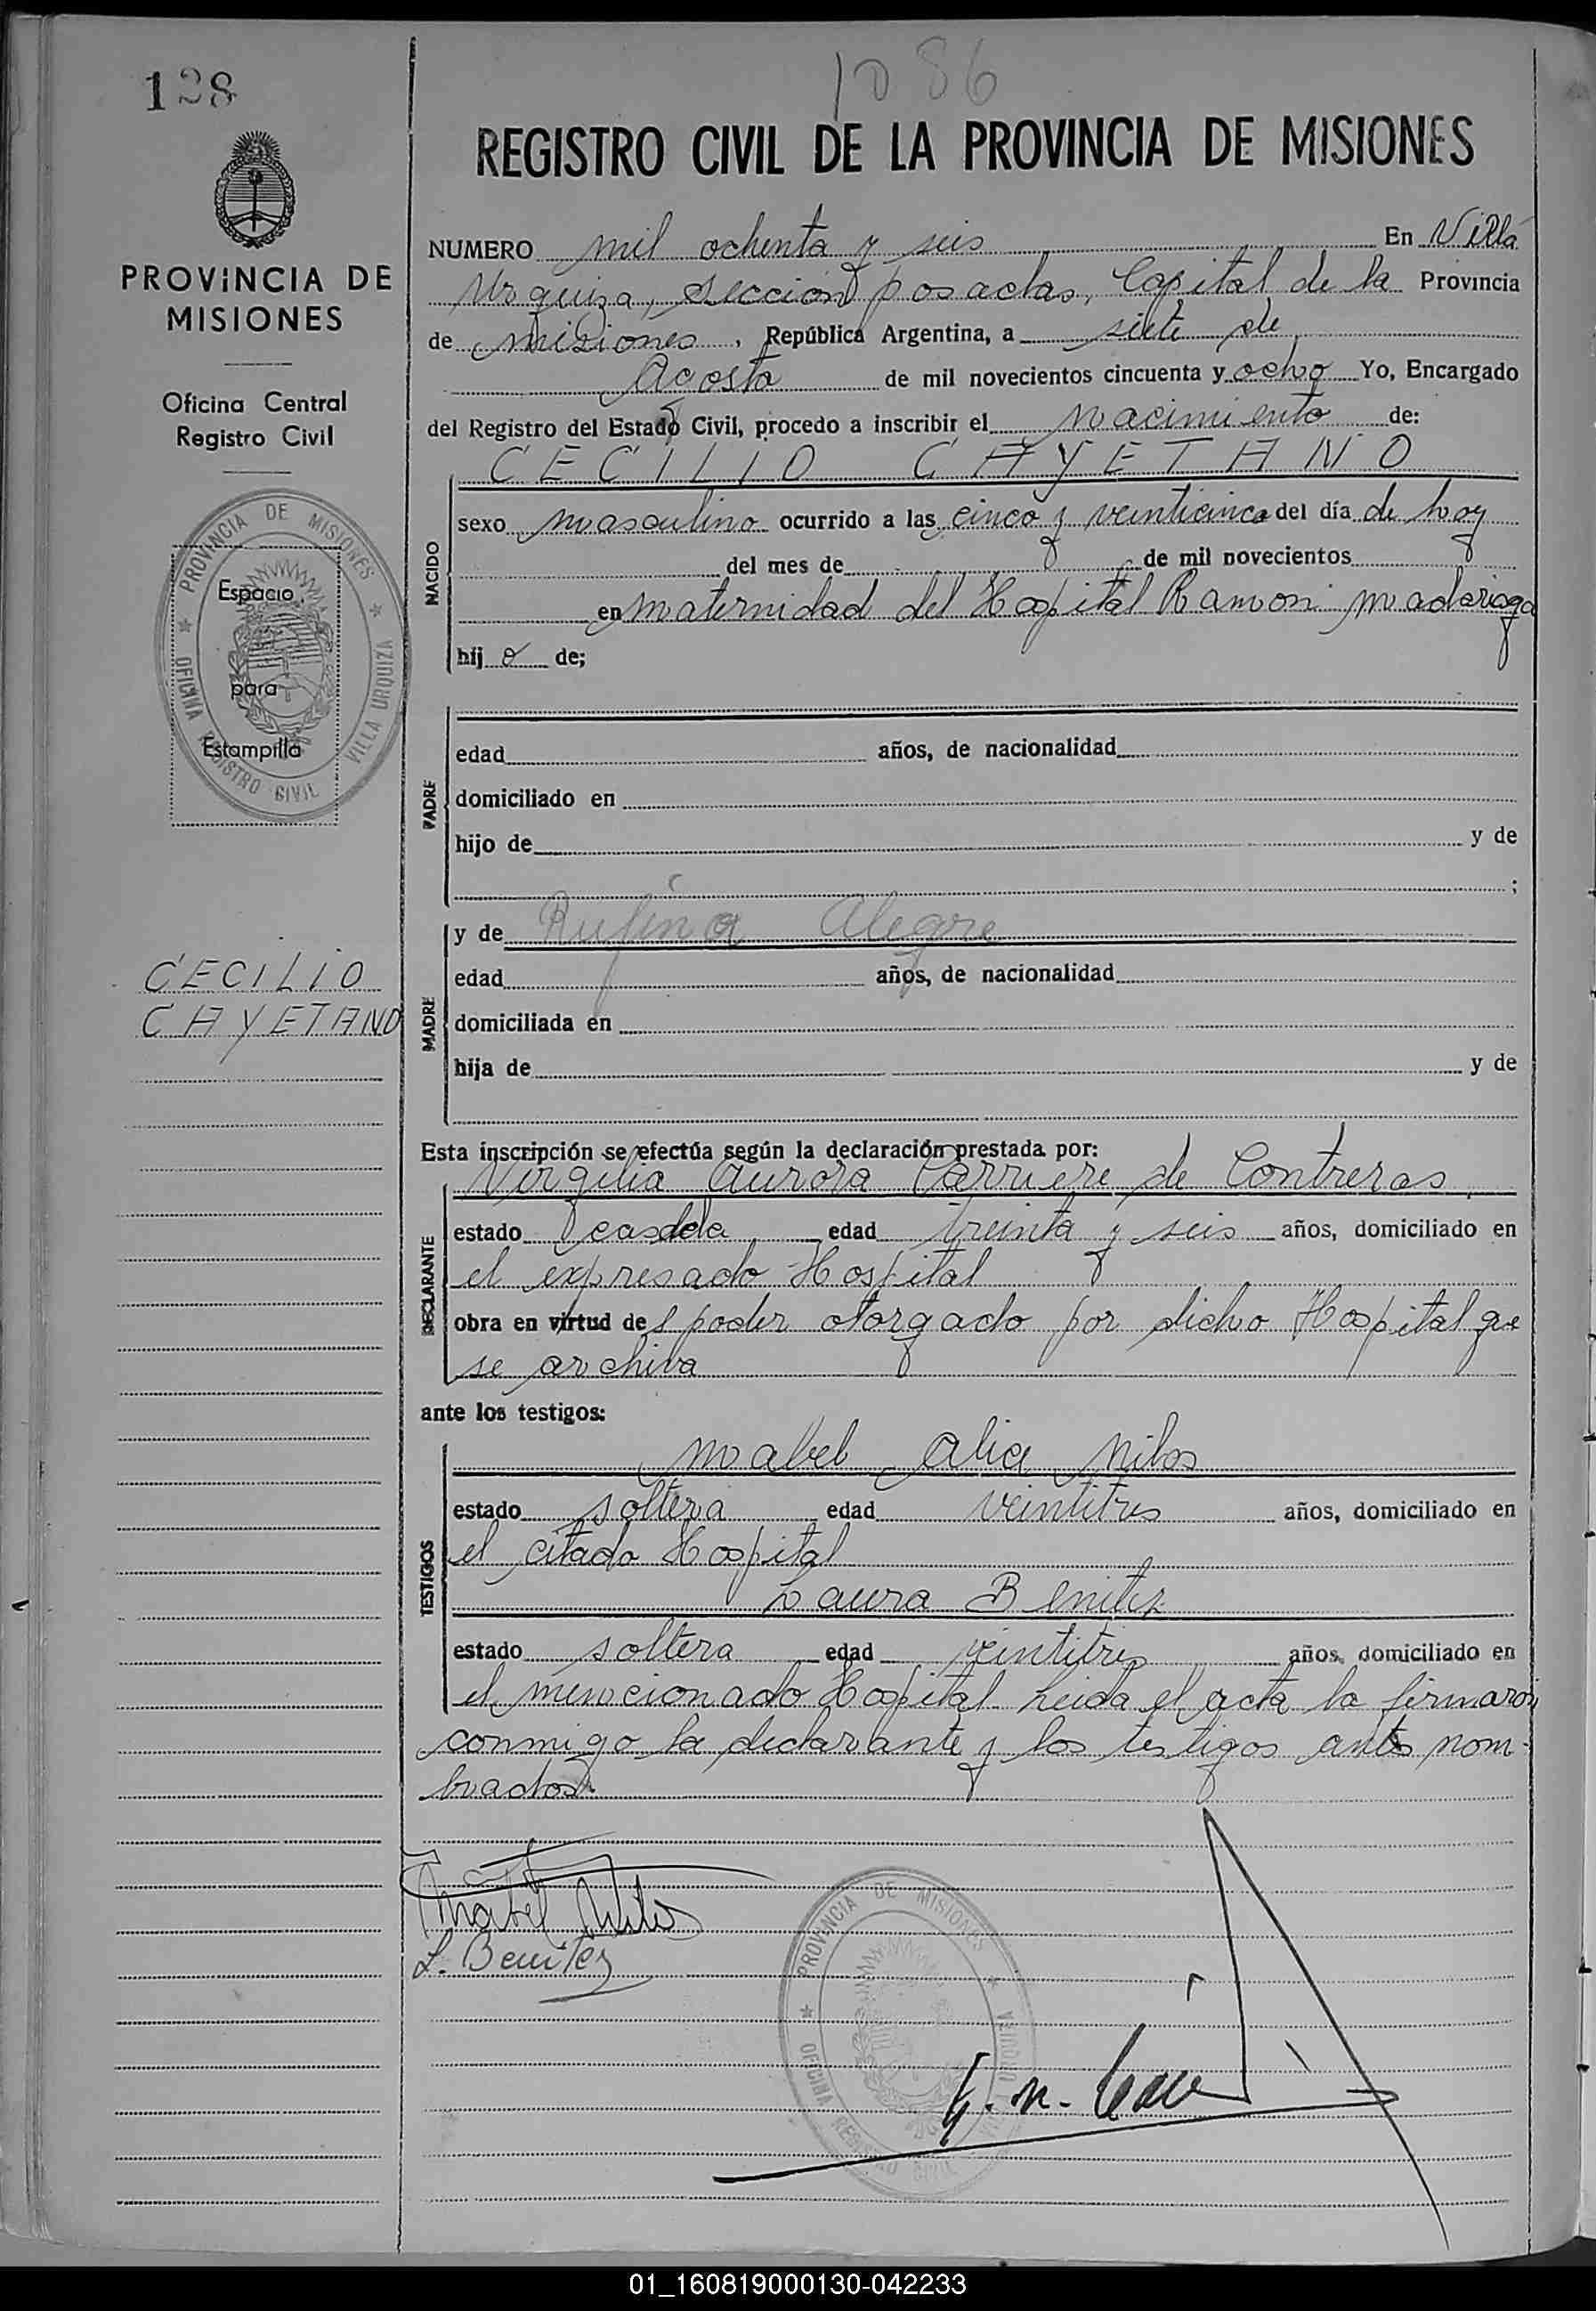 128
1086
REGISTRO CIVIL DE LA PROVINCIA DE MISIONES
PROVINCIA DE
MISIONES
Oficina Central
Registro Civil
PROVINCIA DE MISIONES
OFICINA REGISTRO CIVIL VILLA URQUIZA
Espacio
para
Estampilla
CECILIO
CAYETANO
NUMERO mil ochenta y seis En Villa
Urquiza, sección posadas, Capital de la Provincia
de misiones, República Argentina, a siete de
Agosto de mil novecientos cincuenta y ocho Yo, Encargado
del Registro del Estado Civil, procedo a inscribir el nacimiento de:
CECILIO CAYETANO
NACIDO
sexo masculino ocurrido a las cinco y veinticinco del día de hoy
del mes de de mil novecientos
en maternidad del Hospital Ramon madariaga
hij o de;
PADRE
edad años, de nacionalidad
domiciliado en
hijo de y de
;
MADRE
y de Rufina Alegre
edad años, de nacionalidad
domiciliada en
hija de y de
Esta inscripción se efectúa según la declaración prestada por:
Virgilia Aurora Carriere de Contreras
DECLARANTE
estado casada edad treinta y seis años, domiciliado en
el expresado Hospital
obra en virtud del poder otorgado por dicho Hospital que
se archiva
ante los testigos:
TESTIGOS
mabel alia
estado soltera edad veintitres años, domiciliado en
el citado Hospital
Laura Benitez
estado soltera edad veintitres años, domiciliado en
el mencionado Hospital Leida el acta la firmaron
conmigo la declarante y los testigos antes nom-
brados.
Mabel
L. Benitez
PROVINCIA DE MISIONES
OFICINA REGISTRO CIVIL
01_160819000130-042233